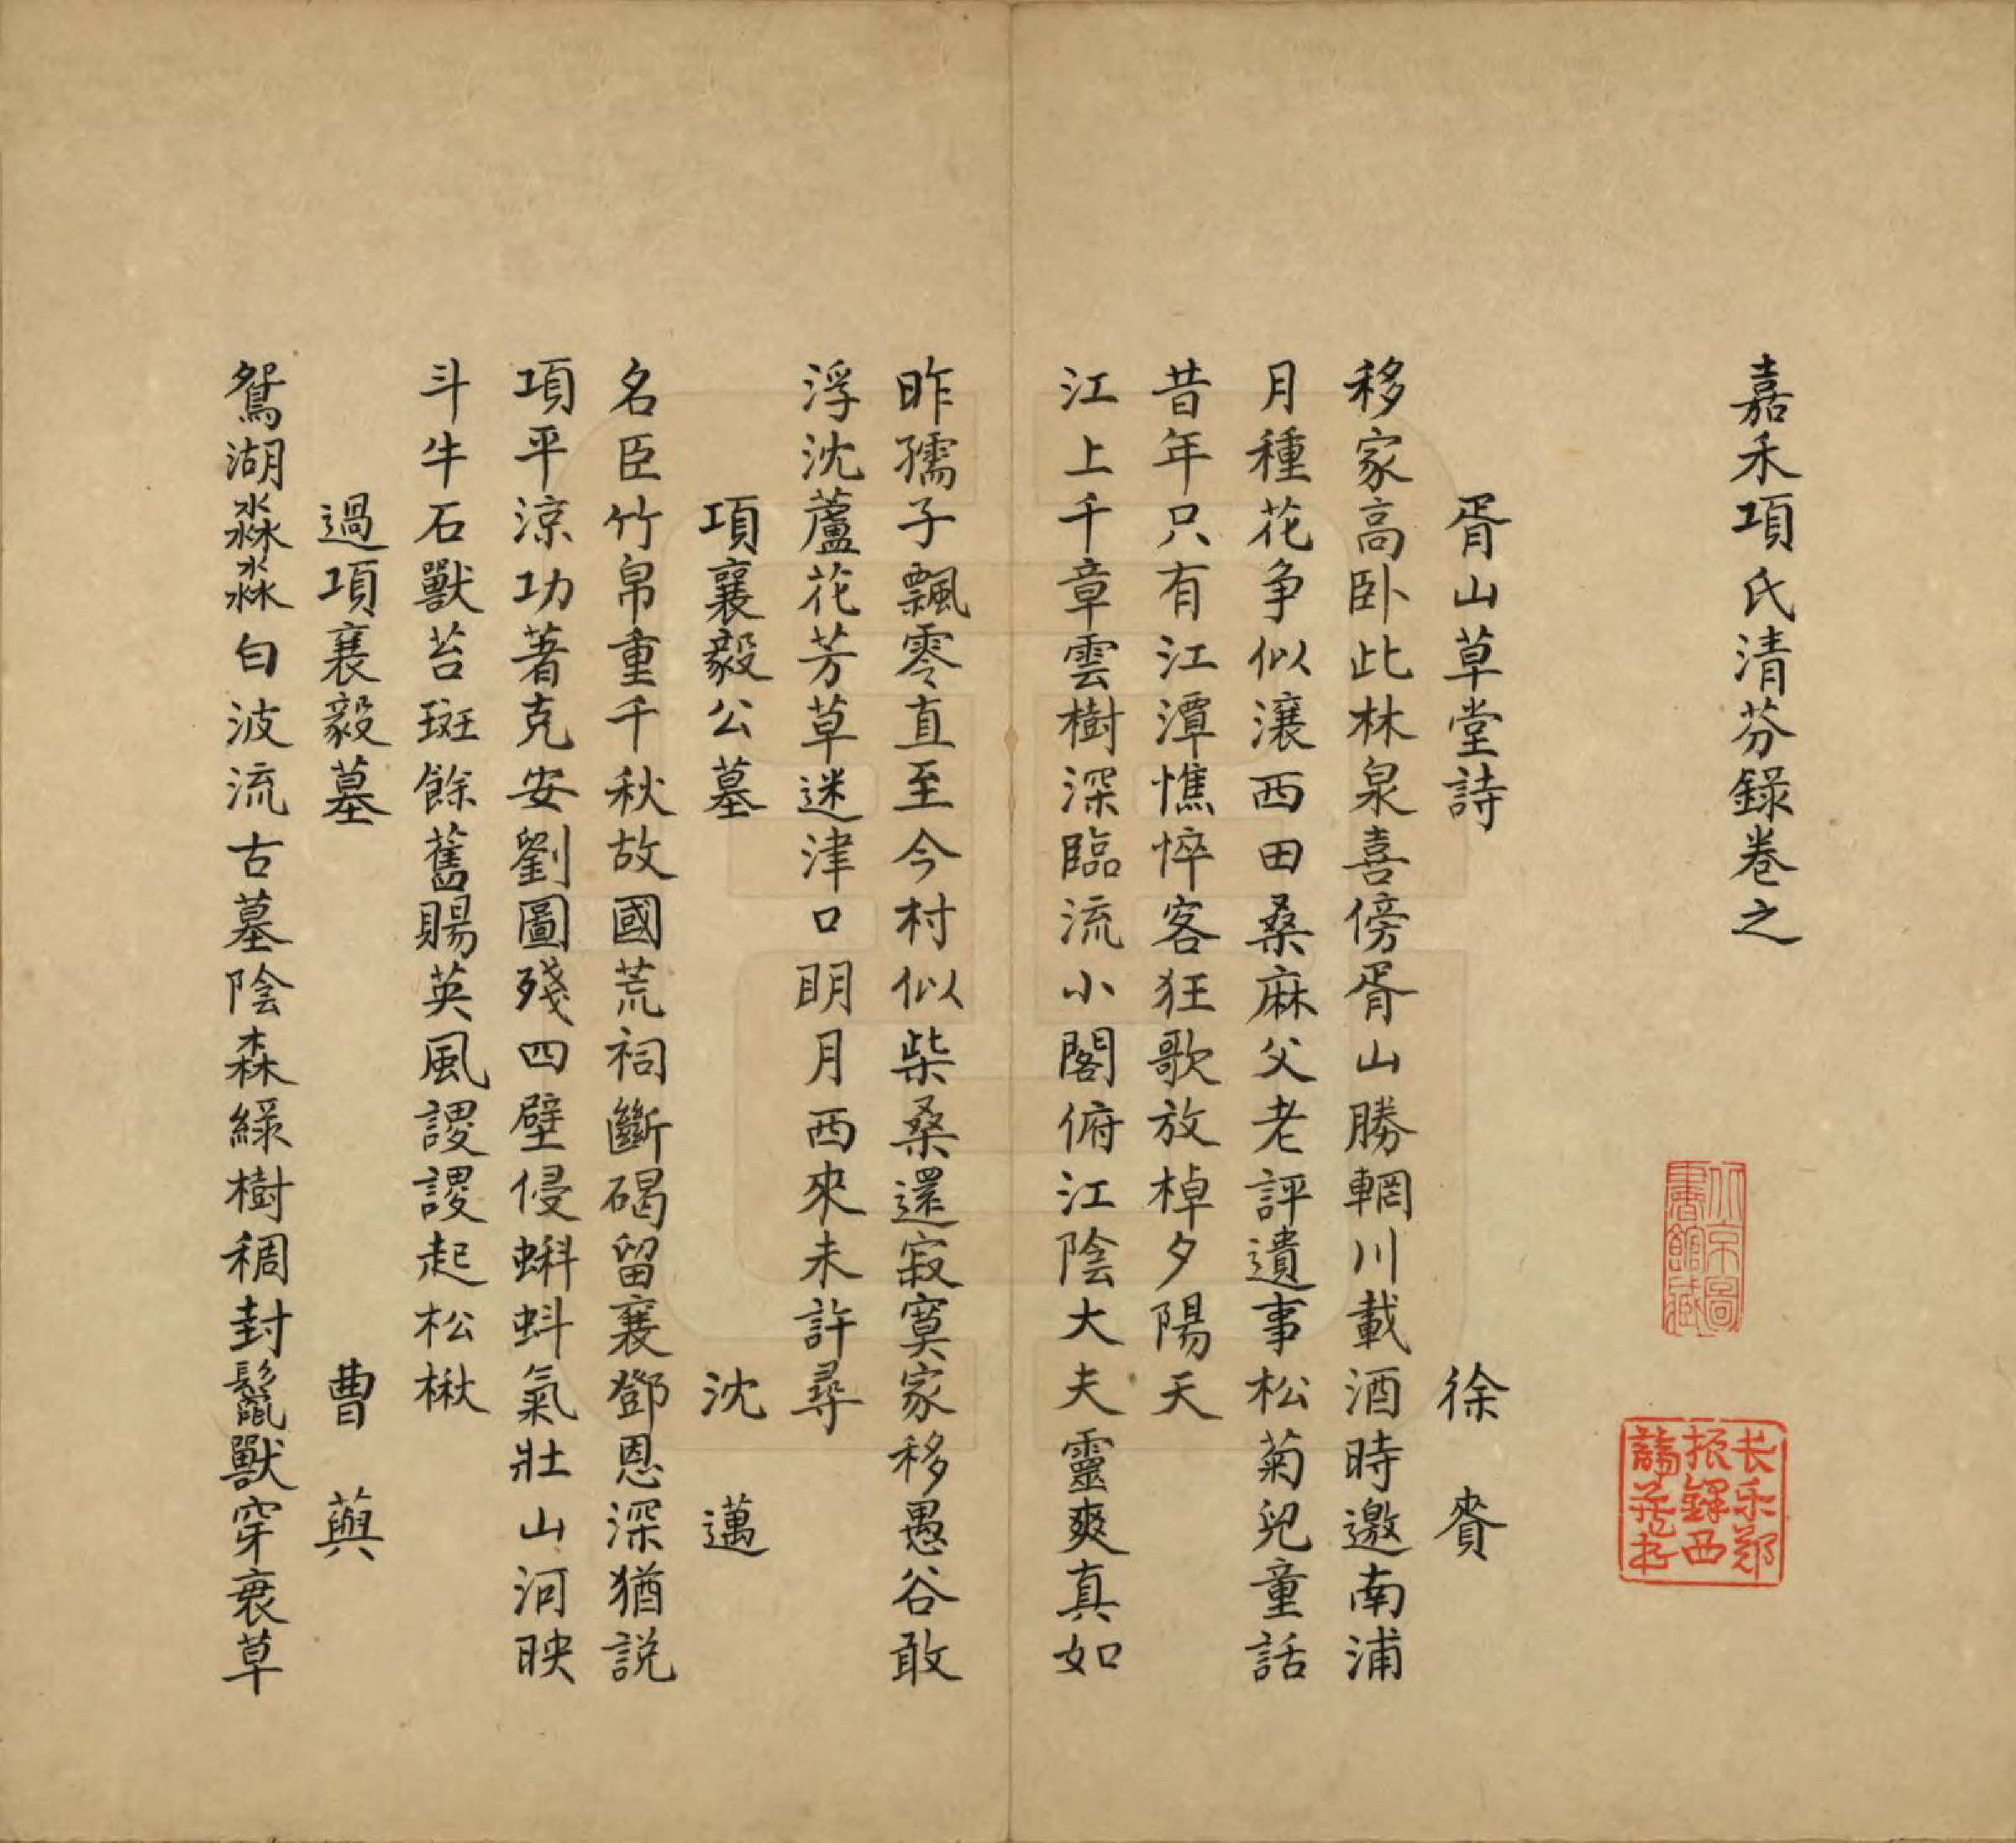 嘉禾項氏清芬錄卷之
北京圖
書館藏
长乐郑
振鐸西
諦藏书
胥山草堂詩 徐賚
移家高卧此林泉喜傍胥山勝輞川載酒時邀南浦
月種花争似瀼西田桑麻父老評遺事松菊兒童話
昔年只有江潭憔悴客狂歌放棹夕陽天
江上千章雲樹深臨流小閣俯江陰大夫靈爽真如
昨孺子飄零直至今村似柴桑還寂寞家移愚谷敢
浮沈蘆花芳草迷津口明月西來未許尋
項襄毅公墓 沈邁
名臣竹帛重千秋故國荒祠斷碣留襄鄧恩深猶説
項平涼功著克安劉圖殘四壁侵蝌蚪氣壯山河映
斗牛石獸苔斑餘舊賜英風謖謖起松楸
過項襄毅墓 曹藇
鴛湖淼淼白波流古墓陰森綠樹稠封鬣獸穿衰草